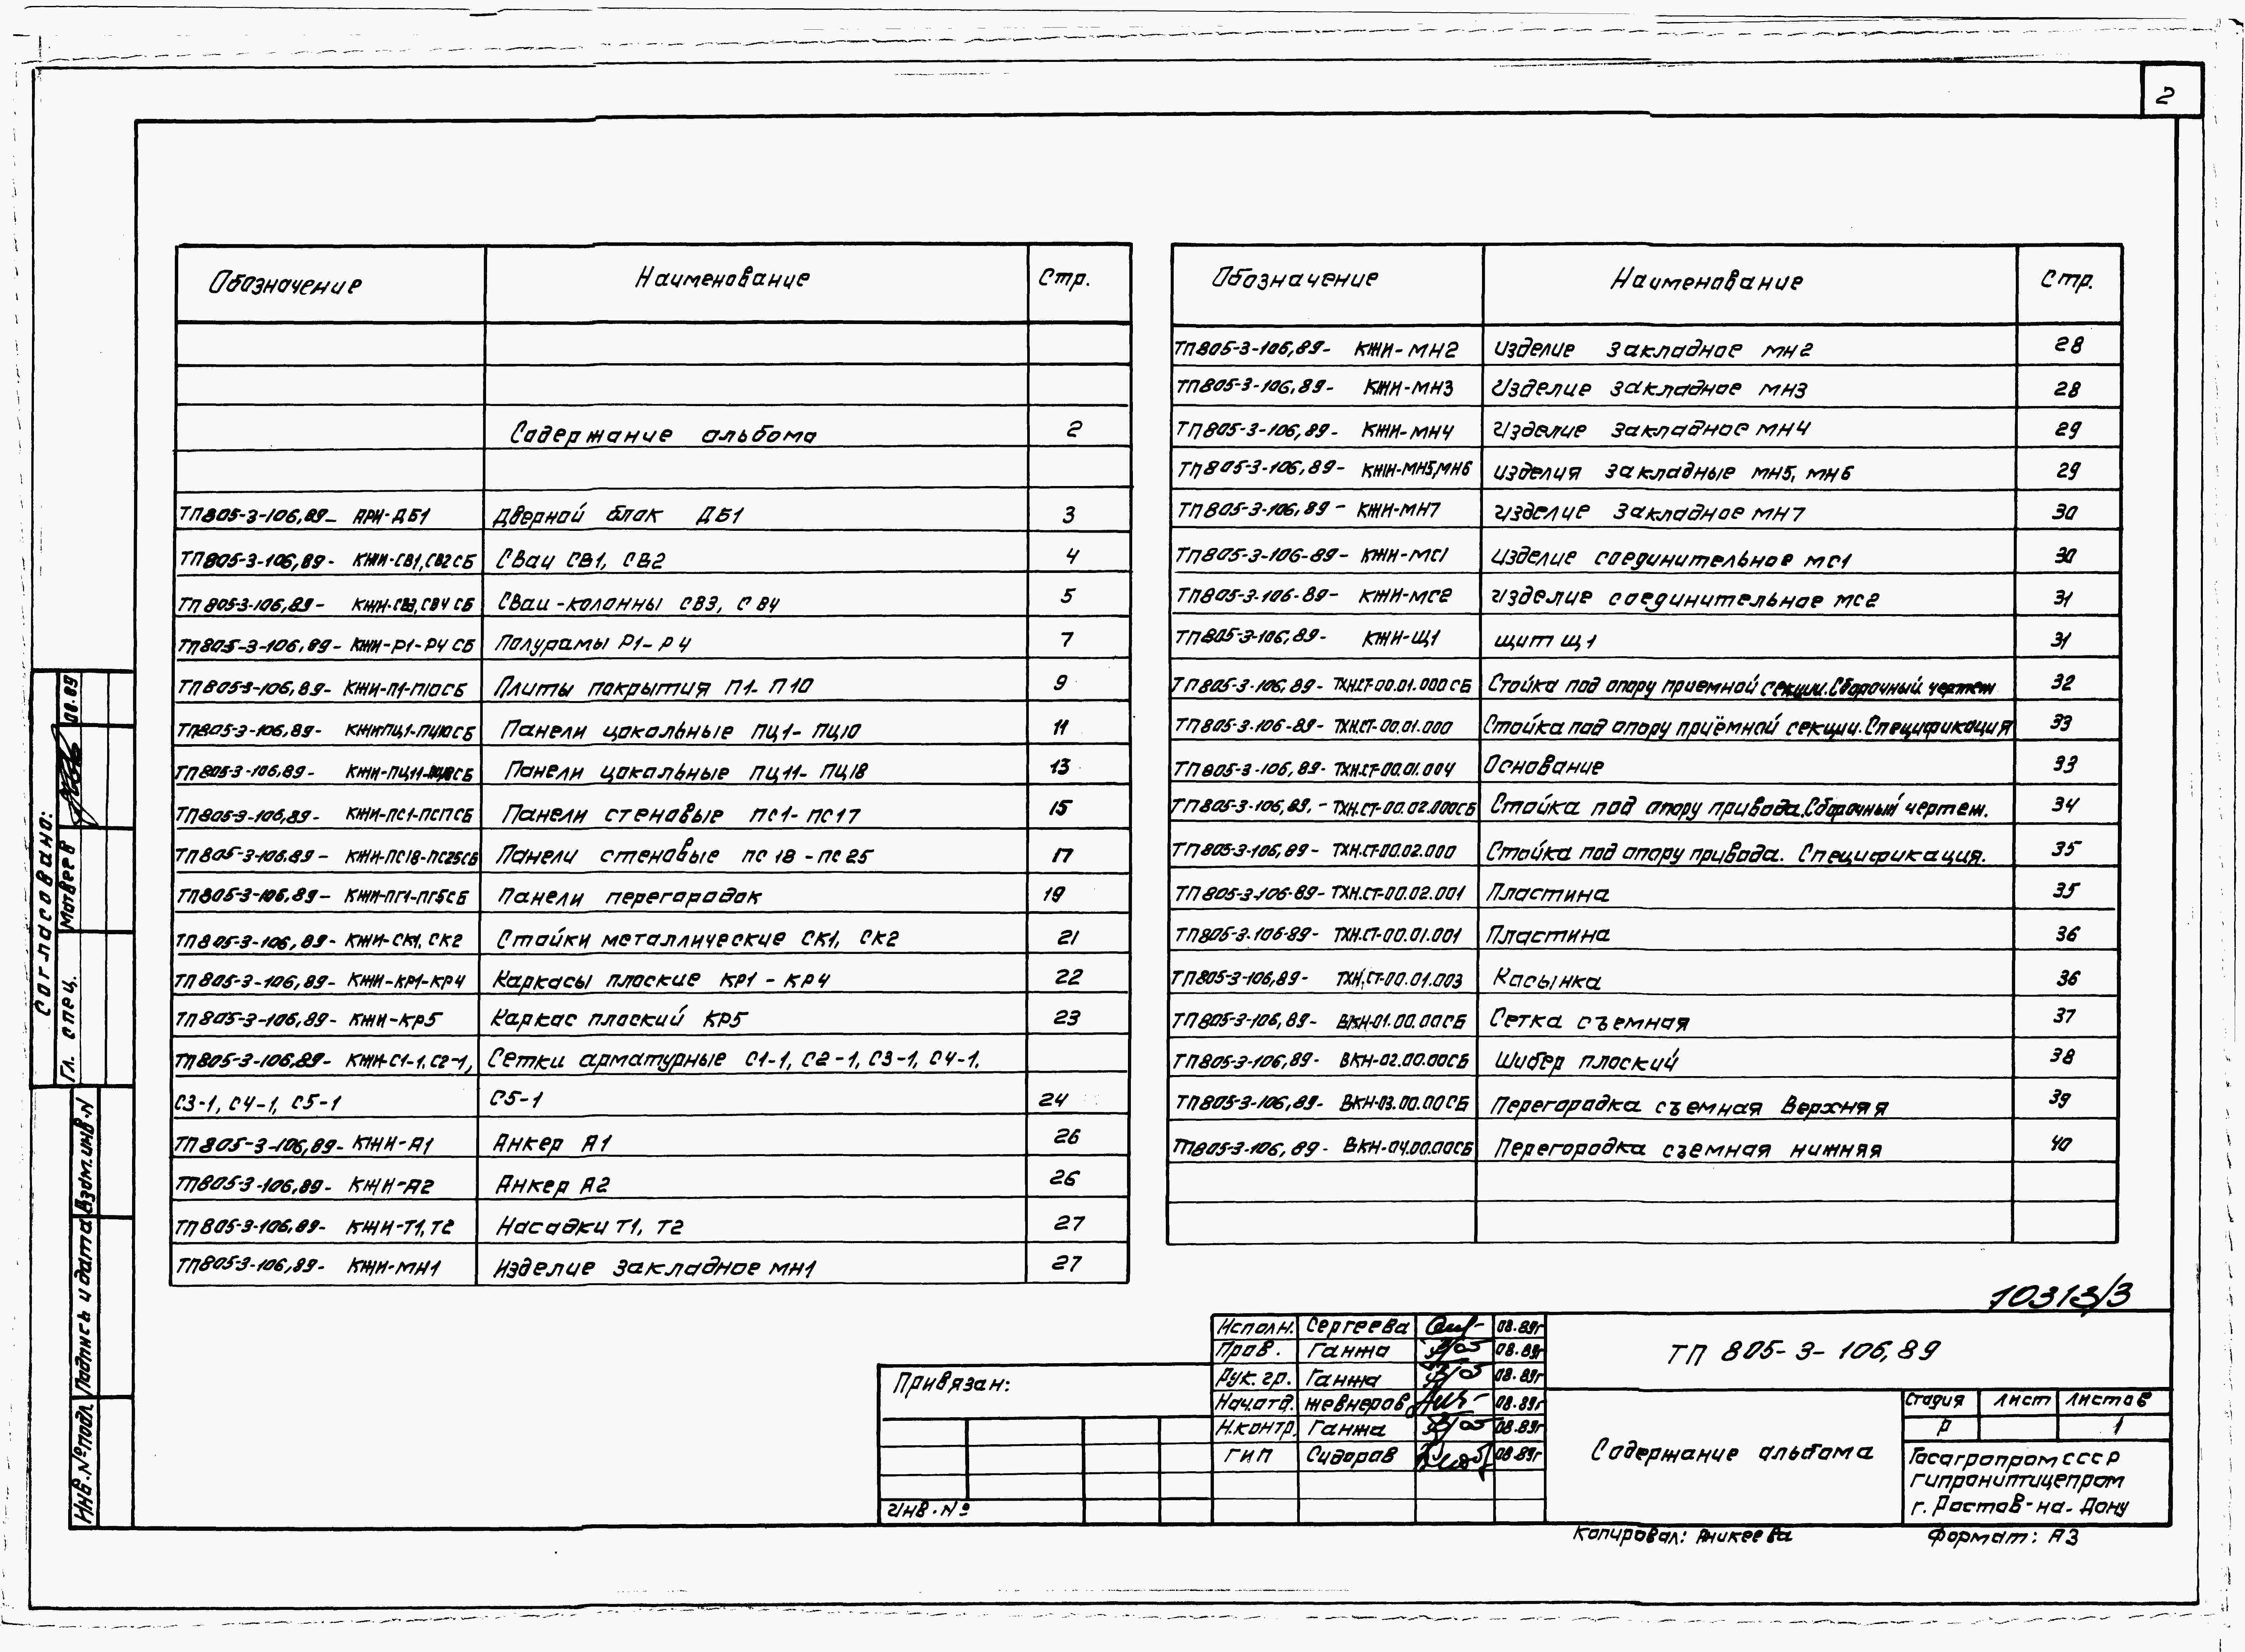 2
Обозначение Наименование Стр.
Содержание альбома 2
ТП805-3-106,89- АРИ-ДБ1 Дверной блок ДБ1 3
ТП805-3-106,89- КЖИ-СВ1,СВ2СБ Сваи СВ1, СВ2 4
ТП805-3-106,89- КЖИ-СВ3,СВ4 СБ Сваи-колонны СВ3, СВ4 5
ТП805-3-106,89- КЖИ-Р1-Р4 СБ Полурамы Р1-Р4 7
ТП805-3-106,89- КЖИ-П1-П10СБ Плиты покрытия П1-П10 9
ТП805-3-106,89- КЖИПЦ1-ПЦ10СБ Панели цокольные ПЦ1-ПЦ10 11
ТП805-3-106,89- КЖИ-ПЦ11-ПЦ18СБ Панели цокольные ПЦ11-ПЦ18 13
ТП805-3-106,89- КЖИ-ПС1-ПС17СБ Панели стеновые ПС1-ПС17 15
ТП805-3-106,89- КЖИ-ПС18-ПС25СБ Панели стеновые ПС18-ПС25 17
ТП805-3-106,89- КЖИ-ПГ1-ПГ5СБ Панели перегородок 19
ТП805-3-106,89- КЖИ-СК1, СК2 Стойки металлические СК1, СК2 21
ТП805-3-106,89- КЖИ-КР1-КР4 Каркасы плоские КР1-КР4 22
ТП805-3-106,89- КЖИ-КР5 Каркас плоский КР5 23
ТП805-3-106,89- КЖИ-С1-1,С2-1, Сетки арматурные С1-1, С2-1, С3-1, С4-1,
С3-1, С4-1, С5-1 С5-1 24
ТП805-3-106,89- КЖИ-А1 Анкер А1 26
ТП805-3-106,89- КЖИ-А2 Анкер А2 26
ТП805-3-106,89- КЖИ-Т1,Т2 Насадки Т1, Т2 27
ТП805-3-106,89- КЖИ-МН1 Изделие закладное МН1 27
Обозначение Наименование Стр.
ТП805-3-106,89- КЖИ-МН2 Изделие закладное МН2 28
ТП805-3-106,89- КЖИ-МН3 Изделие закладное МН3 28
ТП805-3-106,89- КЖИ-МН4 Изделие закладное МН4 29
ТП805-3-106,89- КЖИ-МН5,МН6 Изделия закладные МН5, МН6 29
ТП805-3-106,89- КЖИ-МН7 Изделие закладное МН7 30
ТП805-3-106-89- КЖИ-МС1 Изделие соединительное МС1 30
ТП805-3-106-89- КЖИ-МС2 Изделие соединительное МС2 31
ТП805-3-106,89- КЖИ-Щ1 Щит Щ1 31
ТП805-3-106,89- ТХН.СТ-00.01.000 СБ Стойка под опору приемной секции.Сборочный чертеж 32
ТП805-3-106-89- ТХН.СТ-00.01.000 Стойка под опору приёмной секции.Спецификация 33
ТП805-3-106,89- ТХН.СТ-00.01.004 Основание 33
ТП805-3-106,89.- ТХН.СТ-00.02.000СБ Стойка под опору привода.Сборочный чертеж. 34
ТП805-3-106,89- ТХН.СТ-00.02.000 Стойка под опору привода. Спецификация. 35
ТП805-3-106-89- ТХН.СТ-00.02.001 Пластина 35
ТП805-3-106-89- ТХН.СТ-00.01.001 Пластина 36
ТП805-3-106,89- ТХН.СТ-00.01.003 Косынка 36
ТП805-3-106,89- ВКН-01.00.00СБ Сетка съемная 37
ТП805-3-106,89- ВКН-02.00.00СБ Шибер плоский 38
ТП805-3-106,89- ВКН-03.00.00СБ Перегородка съемная верхняя 39
ТП805-3-106,89- ВКН-04.00.00СБ Перегородка съемная нижняя 40
Согласовано:
Гл. спец. Матвеев 08.89
Инв.№подл Подпись и дата Взам.инв.N
10313/3
Привязан:
Инв.№
Исполн. Сергеева 08.89г
Пров. Ганжа 08.89г
Рук.гр. Ганжа 08.89г
Нач.отд. Жевнеров 08.89г
Н.контр. Ганжа 08.89г
ГИП Сидоров 08.89г
ТП 805-3-106,89
Содержание альбома
Стадия Лист Листов
Р 1
Госагропром СССР
Гипрониптицепром
г. Ростов-на-Дону
Копировал: Аникеева Формат: А3